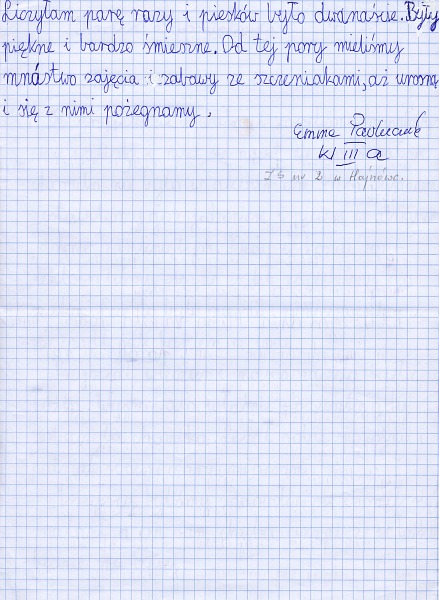 Liczyłam parę razy i piesków było dwanaście. Były
piękne i bardzo śmieszne. Od tej pory mieliśmy
mnóstwo zajęcia i zabawy ze szczeniakami, aż urosną
i się z nimi pożegnamy.
kl III a
ZS nr 2 w Hajnówc.